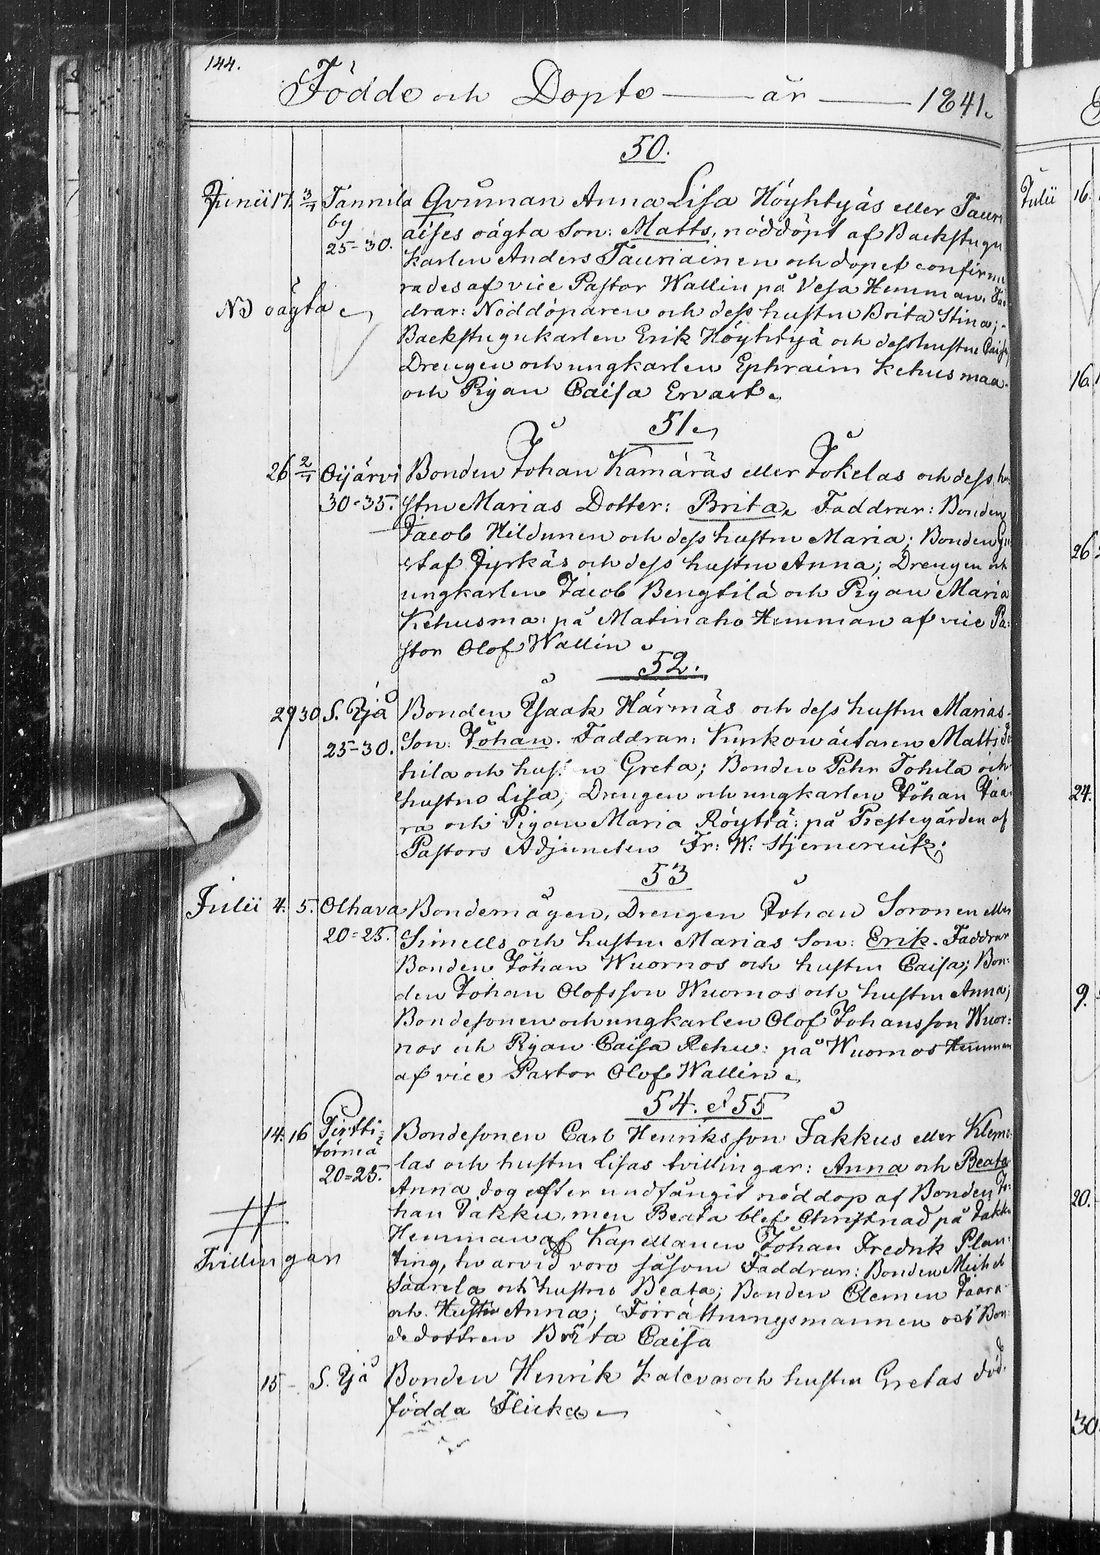 144.
Födde och Döpte — år — 1841.
50.
Junii 17. 3/7 Tannila Qvinnan Anna Lisa Höyhtyäs eller Tauri
by aises oägta Son: Matts, nöddöpt af Backstugu
25-30. karlen Anders Tauriainen och dopet confirme
rades af vice Pastor Wallin på Vesa Hemman. Fad
No oägta drar: Nöddöparen och dess hustru Brita Stina;
Backstugukarlen Erik Höyhtyä och dess hustru Caisa
Drengen och ungkarlen Ephraim Kehusmaa
och Pigan Caisa Ervast.
51.
26 2/7 Oijärvi Bonden Johan Kamäräs eller Jokelas och dess hu
30-35. stru Marias Dotter: Brita. Faddrar: Bonden
Jacob Hildunen och dess hustru Maria; Bonden Gu
staf Jyrkäs och dess hustru Anna; Drengen och
ungkarlen Jacob Bengtilä och Pigan Maria
Kehusma: på Matinaho Hemman af vice Pa-
stor Olof Wallin.
52.
29 30 S. Yjå Bonden Ysaak Härmäs och dess hustru Marias
25-30. Son: Johan. Faddrar: Kyrkowäktaren Matts To
hila och hustru Greta; Bonden Pehr Tohila och
hustru Lisa; Drengen och ungkarlen Johan Jaa
ra och Pigan Maria Röyttä: på Prestegården af
Pastors Adjuncten Fr: W: Stjerncreutz.
53
Julii 4. 5. Olhava Bondemågen, Drengen Johan Soronen eller
20-25. Simells och hustru Marias Son: Erik. Faddrar
Bonden Johan Wuornos och hustru Caisa; Bon-
den Johan Olofsson Wuornos och hustru Anna;
Bondesonen och ungkarlen Olof Johansson Wuor-
nos och Pigan Caisa Rehu: på Wuornos Hemman
af vice Pastor Olof Wallin.
54. & 55
14. 16 Pirtti- Bondesonen Carl Henriksson Jakkus eller Klemo-
törmä las och hustru Lisas tvillingar: Anna och Beata
20-25. Anna dog efter undfångit nöddop af Bonden Jo-
han Jakku, men Beata blef Christnad på Jakku
Hemman af Kapellanen Johan Fredrik Plan-
Tvillingar ting, hvarvid voro såsom Faddrar: Bonden Michel
Saarela och hustru Beata; Bonden Clemen Jaara
och Hustru Anna; Förrättningsmannen och Bon-
dedottren Brita Caisa
15 - S. Yjå Bonden Henrik Kalevas och hustru Gretas död-
födda Flicka
Julii 16.
16.
26.
24.
9.
20.
30